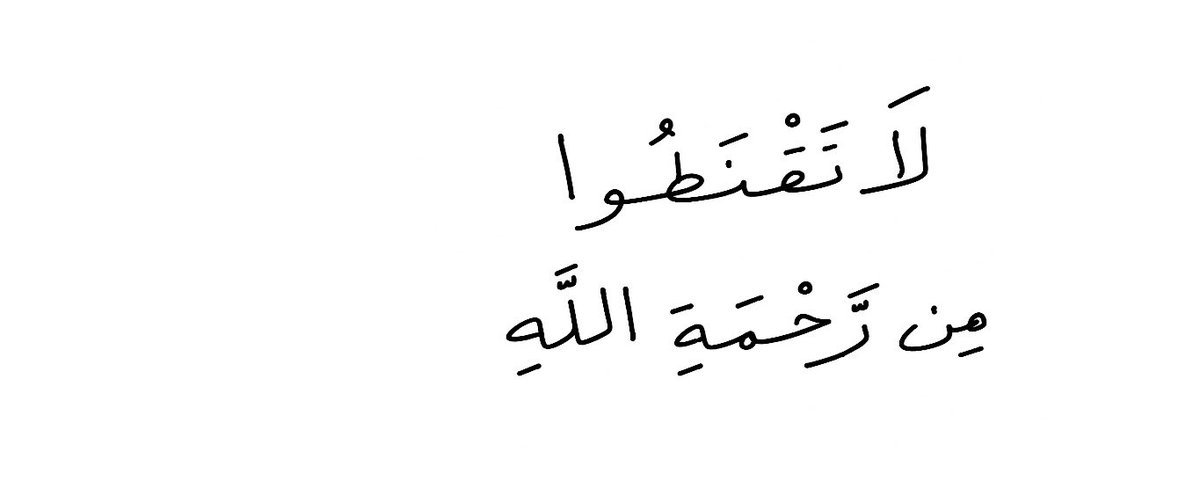 لَا تَقْنَطُوا
مِن رَّحْمَةِ اللَّهِ